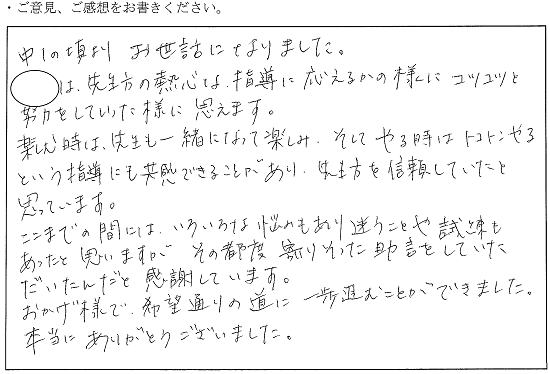 ・ご意見、ご感想をお書きください。
中1の頃より お世話になりました。
は、先生方の熱心な指導に応えるかの様にコツコツと
努力をしていた様に思えます。
楽しむ時は、先生も一緒になって楽しみ、そしてやる時はトコトンやる
という指導にも共感できることがあり、先生方を信頼していたと
思っています。
ここまでの間には、いろいろな悩みもあり迷うことや試練も
あったと思いますが その都度 寄りそった助言をしていた
だいたんだと感謝しています。
おかげ様で、希望通りの道に 一歩進むことができました。
本当に ありがとうございました。